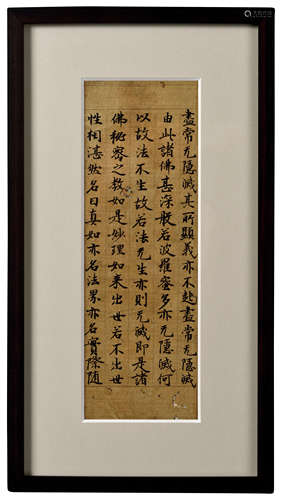 盡常无隱滅其所顯義亦不赴盡常无隱滅
由此諸佛甚深般若波羅蜜多亦无隱滅何
以故法不生故若法无生亦則无滅即是諸
佛秘密之教如是妙理如来出世若不出世
性相湛然名曰真如亦名法界亦名實際随